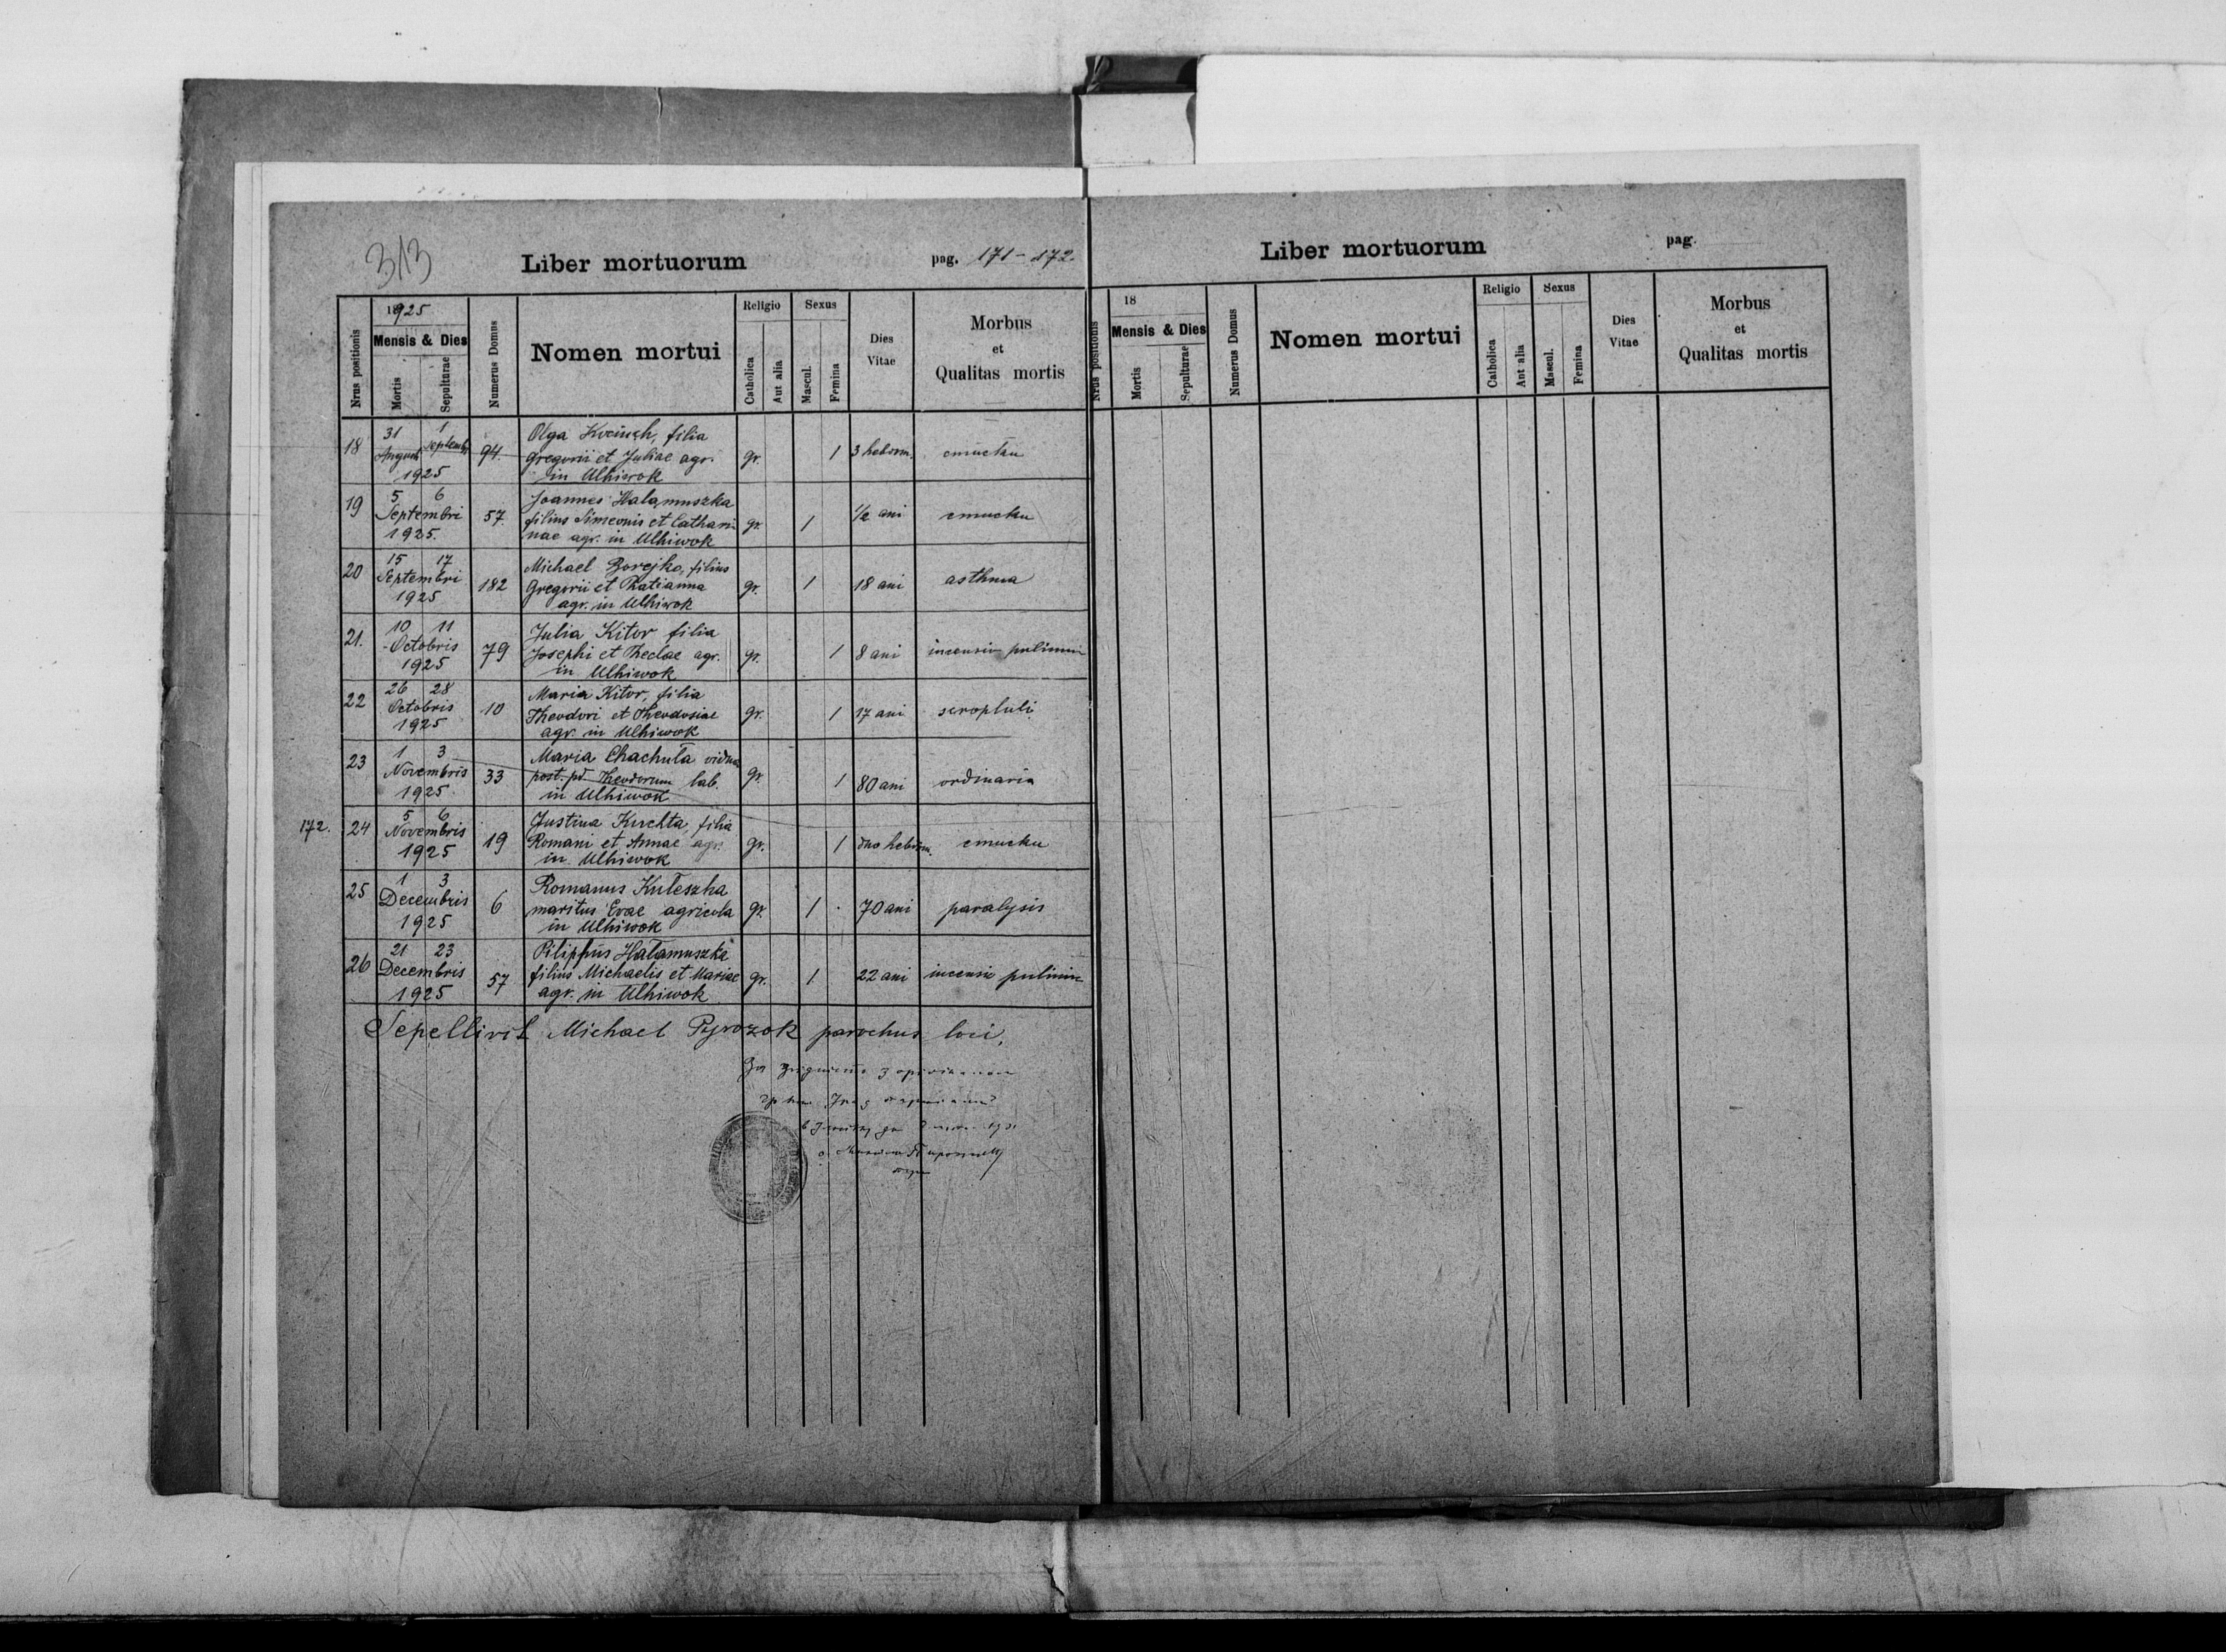 313
Liber mortuorum
pag. 171-172.
Nrus positionis
18925
Mensis & Dies
Mortis
Sepulturae
Numerus Domus
Nomen mortui
Religio
Catholica
Aut alia
Sexus
Mascul.
Femina
Dies
Vitae
Morbus
et
Qualitas mortis
18 31 1 94. Olga filia gr. 1 3 hebdom.
August Septembr Gregorii et Juliae agr.
1925 in Ulhiwok
19 5 6 57. Joannes Halamuszka gr. 1 1/2 ani
Septembri filius Simeonis et Cathari
1925. nae agr. in Ulhiwok
20 15 17 182 Michael Borejko, filius gr. 1 18 ani asthma
Septembri Gregorii et Tatianna
1925 agr. in Ulhiwok
21. 10 11 79 Julia Kitor filia gr. 1 8 ani
Octobris Josephi et Theclae agr.
1925 in Ulhiwok
22 26 28 10 Maria Kitor, filia gr. 1 17 ani
Octobris Theodori et Theodosiae
1925 agr. in Ulhiwok
23 1 3 33 Maria Chachuła vidua gr. 1 80 ani ordinaria
Novembris post. pd. Theodorum lab.
1925 in Ulhiwok
172. 24 5 6 19 Justina Kuchta, filia gr. 1 duo hebdom.
Novembris Romani et Annae agr.
1925 in Ulhiwok
25 1 3 6 Romanus Kuleszha gr. 1 70 ani paralysis
Decembris maritus Evae agricola
1925 in Ulhiwok
26 21 23 57 Pilippus Hałamuszka gr. 1 22 ani
Decembris filius Michaelis et Mariae
1925 agr. in Ulhiwok
Sepellivit Michael Pyrozok parochus loci.
Liber mortuorum
pag.
Nrus positionis
18
Mensis & Dies
Mortis
Sepulturae
Numerus Domus
Nomen mortui
Religio
Catholica
Aut alia
Sexus
Mascul.
Femina
Dies
Vitae
Morbus
et
Qualitas mortis